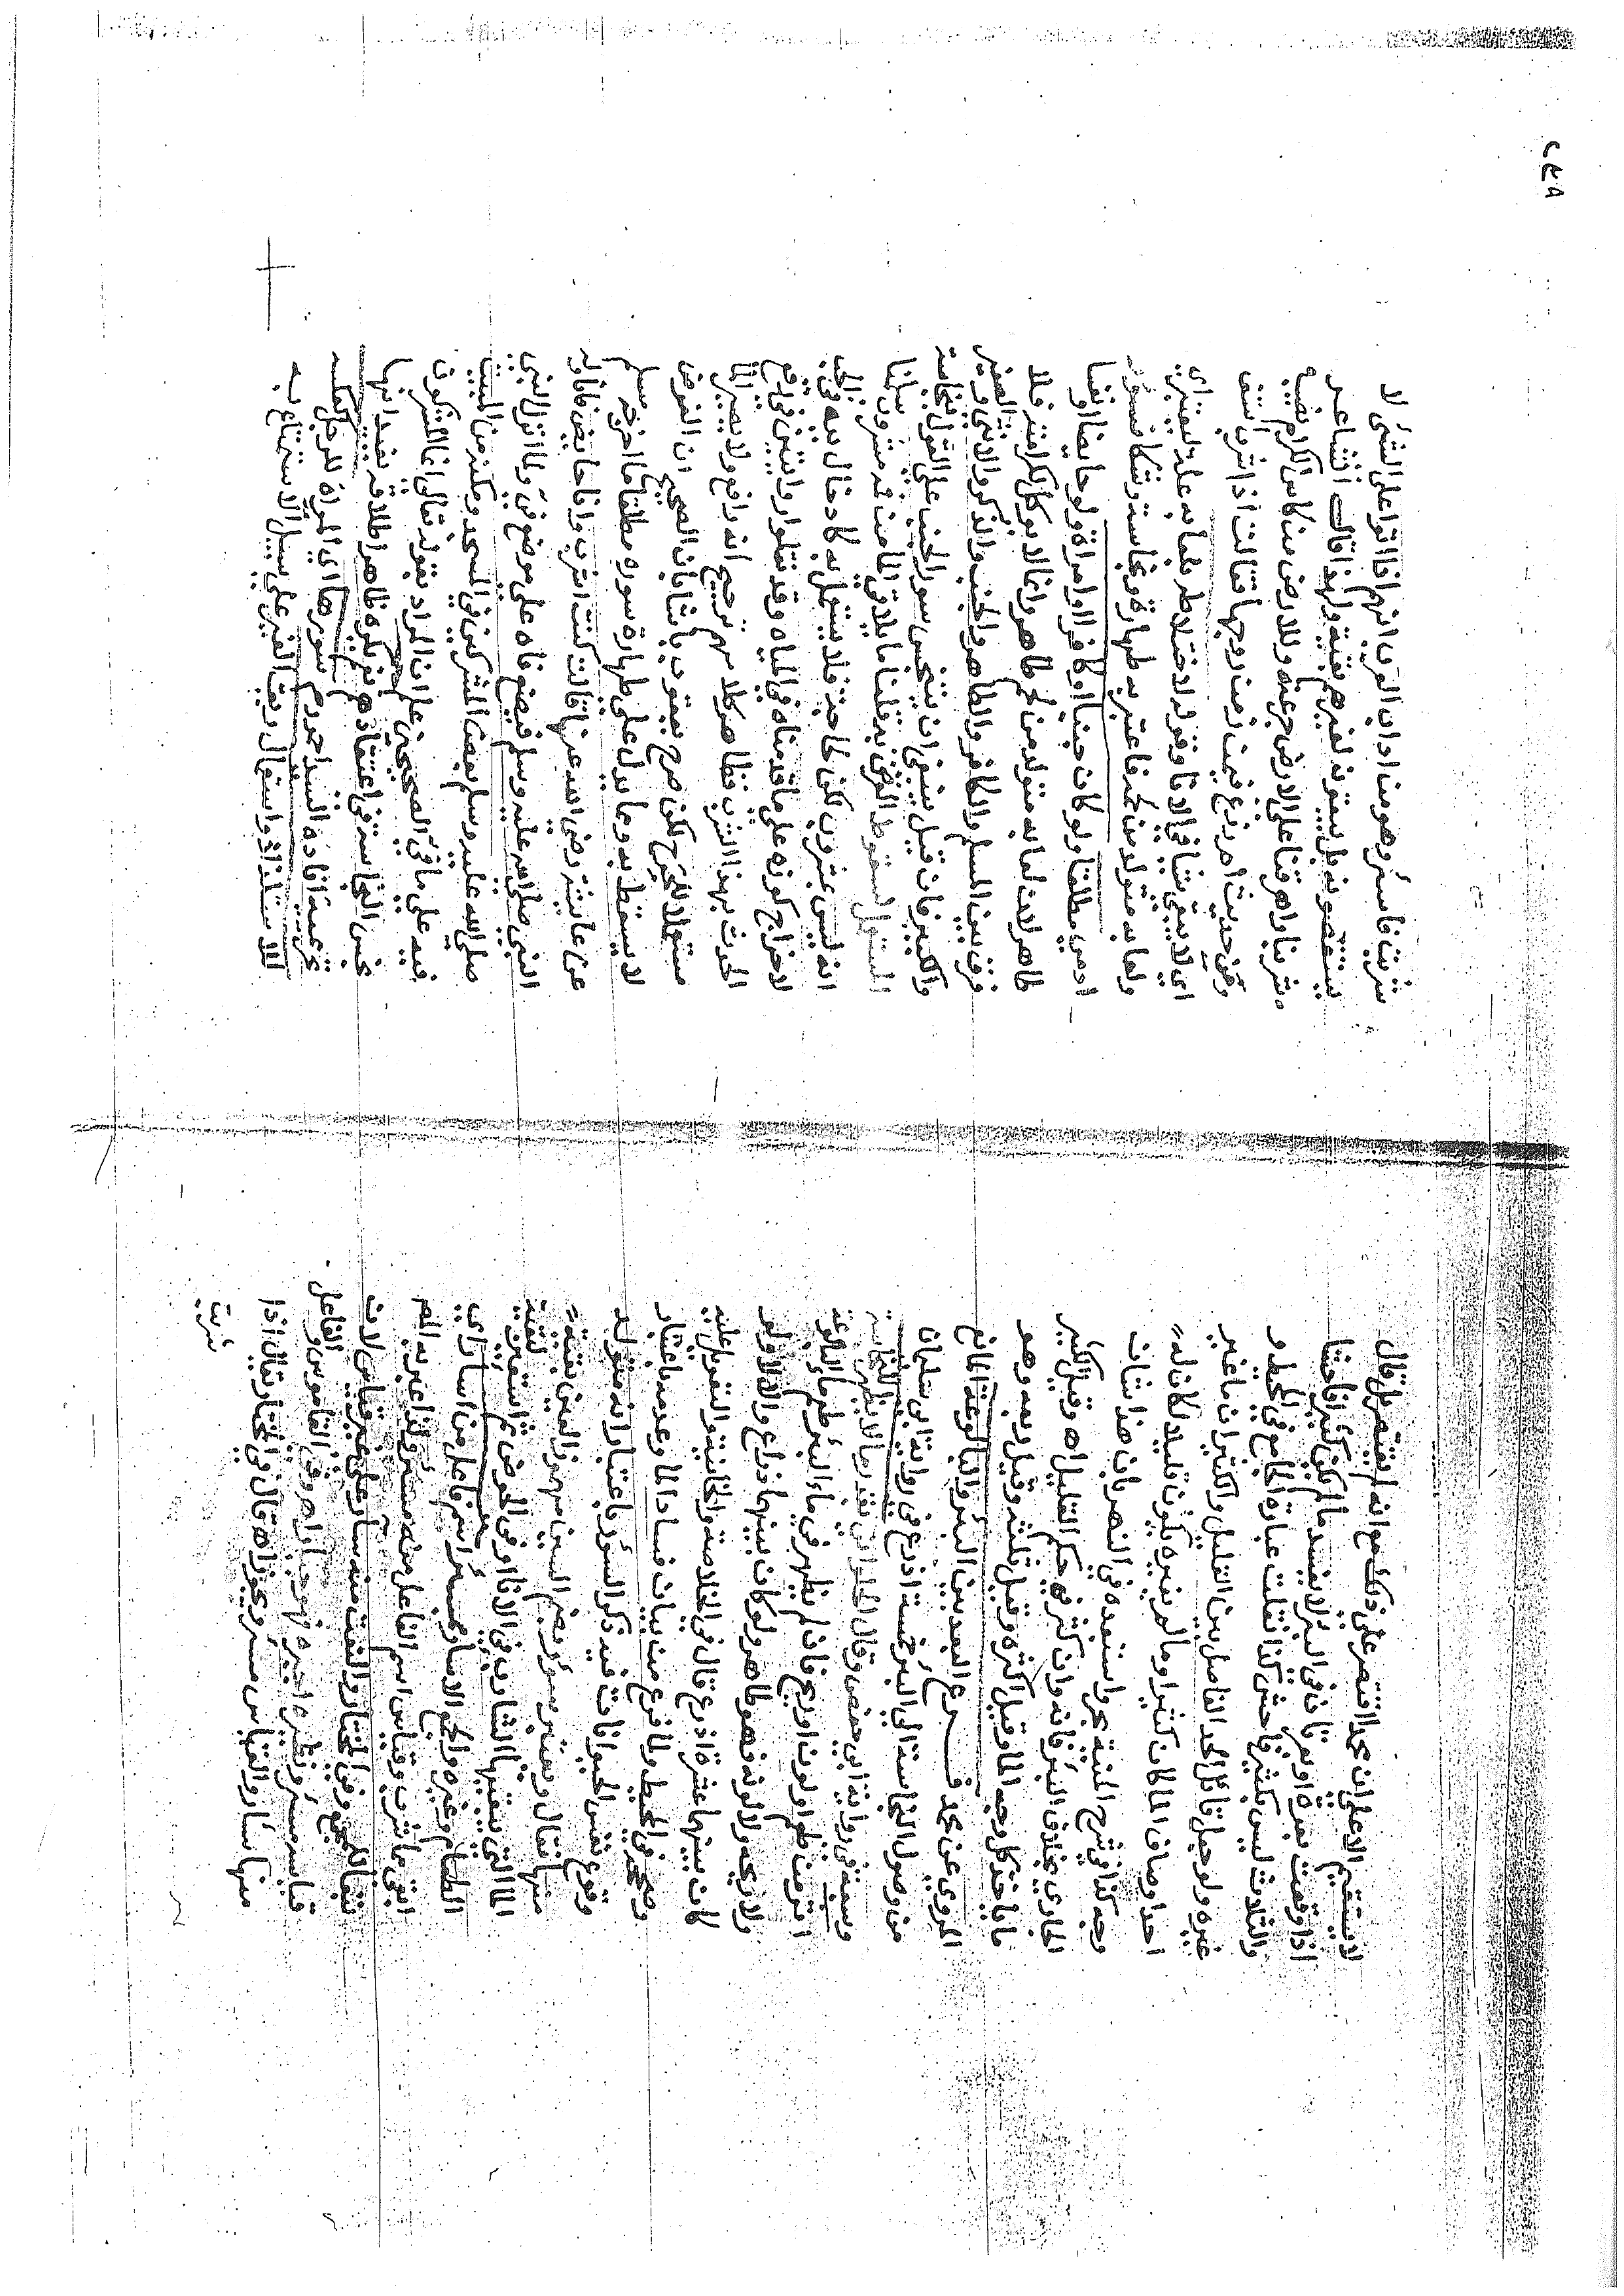 لا يستقيم الا على ان محمدا اقتصر على ذلك مع انه لم يقتصر بل قال
اذا وقعت بعرة او بعرتان في البئر لا يفسد ما لم يكن كثيرا فاحشا
والثلاث ليس بكثير فاحش كذا نقلت عبارة الجامع في المحيط و
غيره ولو جعل قائل الحد الفاصل بين القليل والكثير ان ما غير
احد اوصاف الماء كان كثيرا وما لم يغيره يكون قليلا لكان له
وجه كذا في شرح المنية بحر واستبعده في النهر بان هذا شان
الجاري بخلاف البئر فانه وان كثر في حكم القليل اه وقيل الكثير
ما ياخذ كل وجه الماء وقيل اكثره وقيل ثلثه وقيل ربعه وهو
المروي عن محمد فرع البعد بين البئر والبالوعة المانع
من وصول النجاسة الى البئر خمسة اذرع في رواية ابي سليمان
وسبعة في رواية ابي حفص وقال الحلواني بقدر ما لا يظهر اثر النجاسة
طعم او لون او ريح فان لم يظهر في ماء البئر طعم ماء البالوعة
ولا ريحه ولا لونه فهو طاهر ولو كان بينهما ذراع والا لا ولو
كان بينهما عشرة اذرع قال في الخلاصة والخانية والتعويل عليه
وصححه في المحيط ولما فرغ من بيان فساد الماء وعدمه باعتبار
وقوع نفس الحيوانات فيه ذكر السؤر باعتبار انه متولد
منها فقال ويعتبر سؤر بضم السين مهموز العين بقية
الماء التي يبقيها الشارب في الاناء او في الحوض ثم استعير لبقية
الطعام وغيره والجمع الاسار ومسئر اسم فاعل من اسار اي
ابقى مما شرب وقياس اسم الفاعل منه مسئر
سار على غير قياس لان
قياسه مسئر ونظيره اجبره فهو جبار اه وفي القاموس والفاعل
منهما سار والقياس مسئر ويجوز اه قال في المختار يقال اذا
شربت
شربت فاسئر وهو من اداب العرب انهم اذا اتوا على الشئ لا
يستقصونه بل يبقون لغيرهم بقية ولهذا قال الشاعر
شربنا واهرقنا على الارض جرعة وللارض من كاس الكرام نصيب
وفي حديث ام زرع فيمن ذمت زوجها فقالت اذا شرب اشتف
اي لا يبقي شيئا في الاناء وقوله لاختلاطه بلعابه علة ليعتبر اي
ولعابه متولد من لحمه فاعتبر به طهارة ونجاسة وشكا فسؤر
ادمي مطلقا ولو كان جنبا او كافرا او امراة ولو حايضا او نفساء
طاهر لان لعابه متولد من لحم طاهر وانما لا يوكل لكرامته فلا
فرق بين المسلم والكافر والطاهر والجنب والذكر والانثى والصغير
والكبير فان قيل ينبغي ان ينجس سور الجنب على القول بنجاسة
المستعمل لسقوط الفرض به قلنا ما يلاقي الماء من فمه مشروب سلمنا
انه ليس بمشروب لكن لحاجة فلا يستعمل به كادخال يده في الاناء
لاخراج كوزه على ما قدمناه في المياه وقد نقلوا روايتين في رفع
الحدث بهذا الشرب فظاهر كلامهم ترجيح انه رافع ولا يصير الماء
مستعملا للحرج لكن صرح يعقوب باشا بان الصحيح ان الفرض
لا يسقط به ومما يدل على طهارة سوره مطلقا ما اخرجه مسلم
عن عايشة رضي الله عنها قالت كنت اشرب وانا حايض فاناوله
النبي صلى الله عليه وسلم فيضع فاه على موضع في ولما انزل النبي
صلى الله عليه وسلم بعض المشركين في المسجد ومكنه من المبيت
فيه على ما في الصحيحين علم ان المراد بقوله تعالى انما المشركون
نجس النجاسة في اعتقادهم نعم يكره
تحريمه افادة السيد احمد م سورها اي المراة للرجل كعكسه
للاستلذاذ واستعمال ريق الغير على سبيل الاستمتاع به